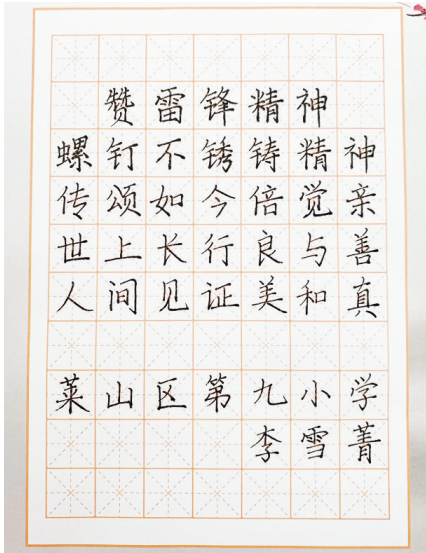 赞雷锋精神
螺钉不锈铸精神
传颂如今倍觉亲
世上长行良与善
人间见证美和真
莱山区第九小学
李雪菁